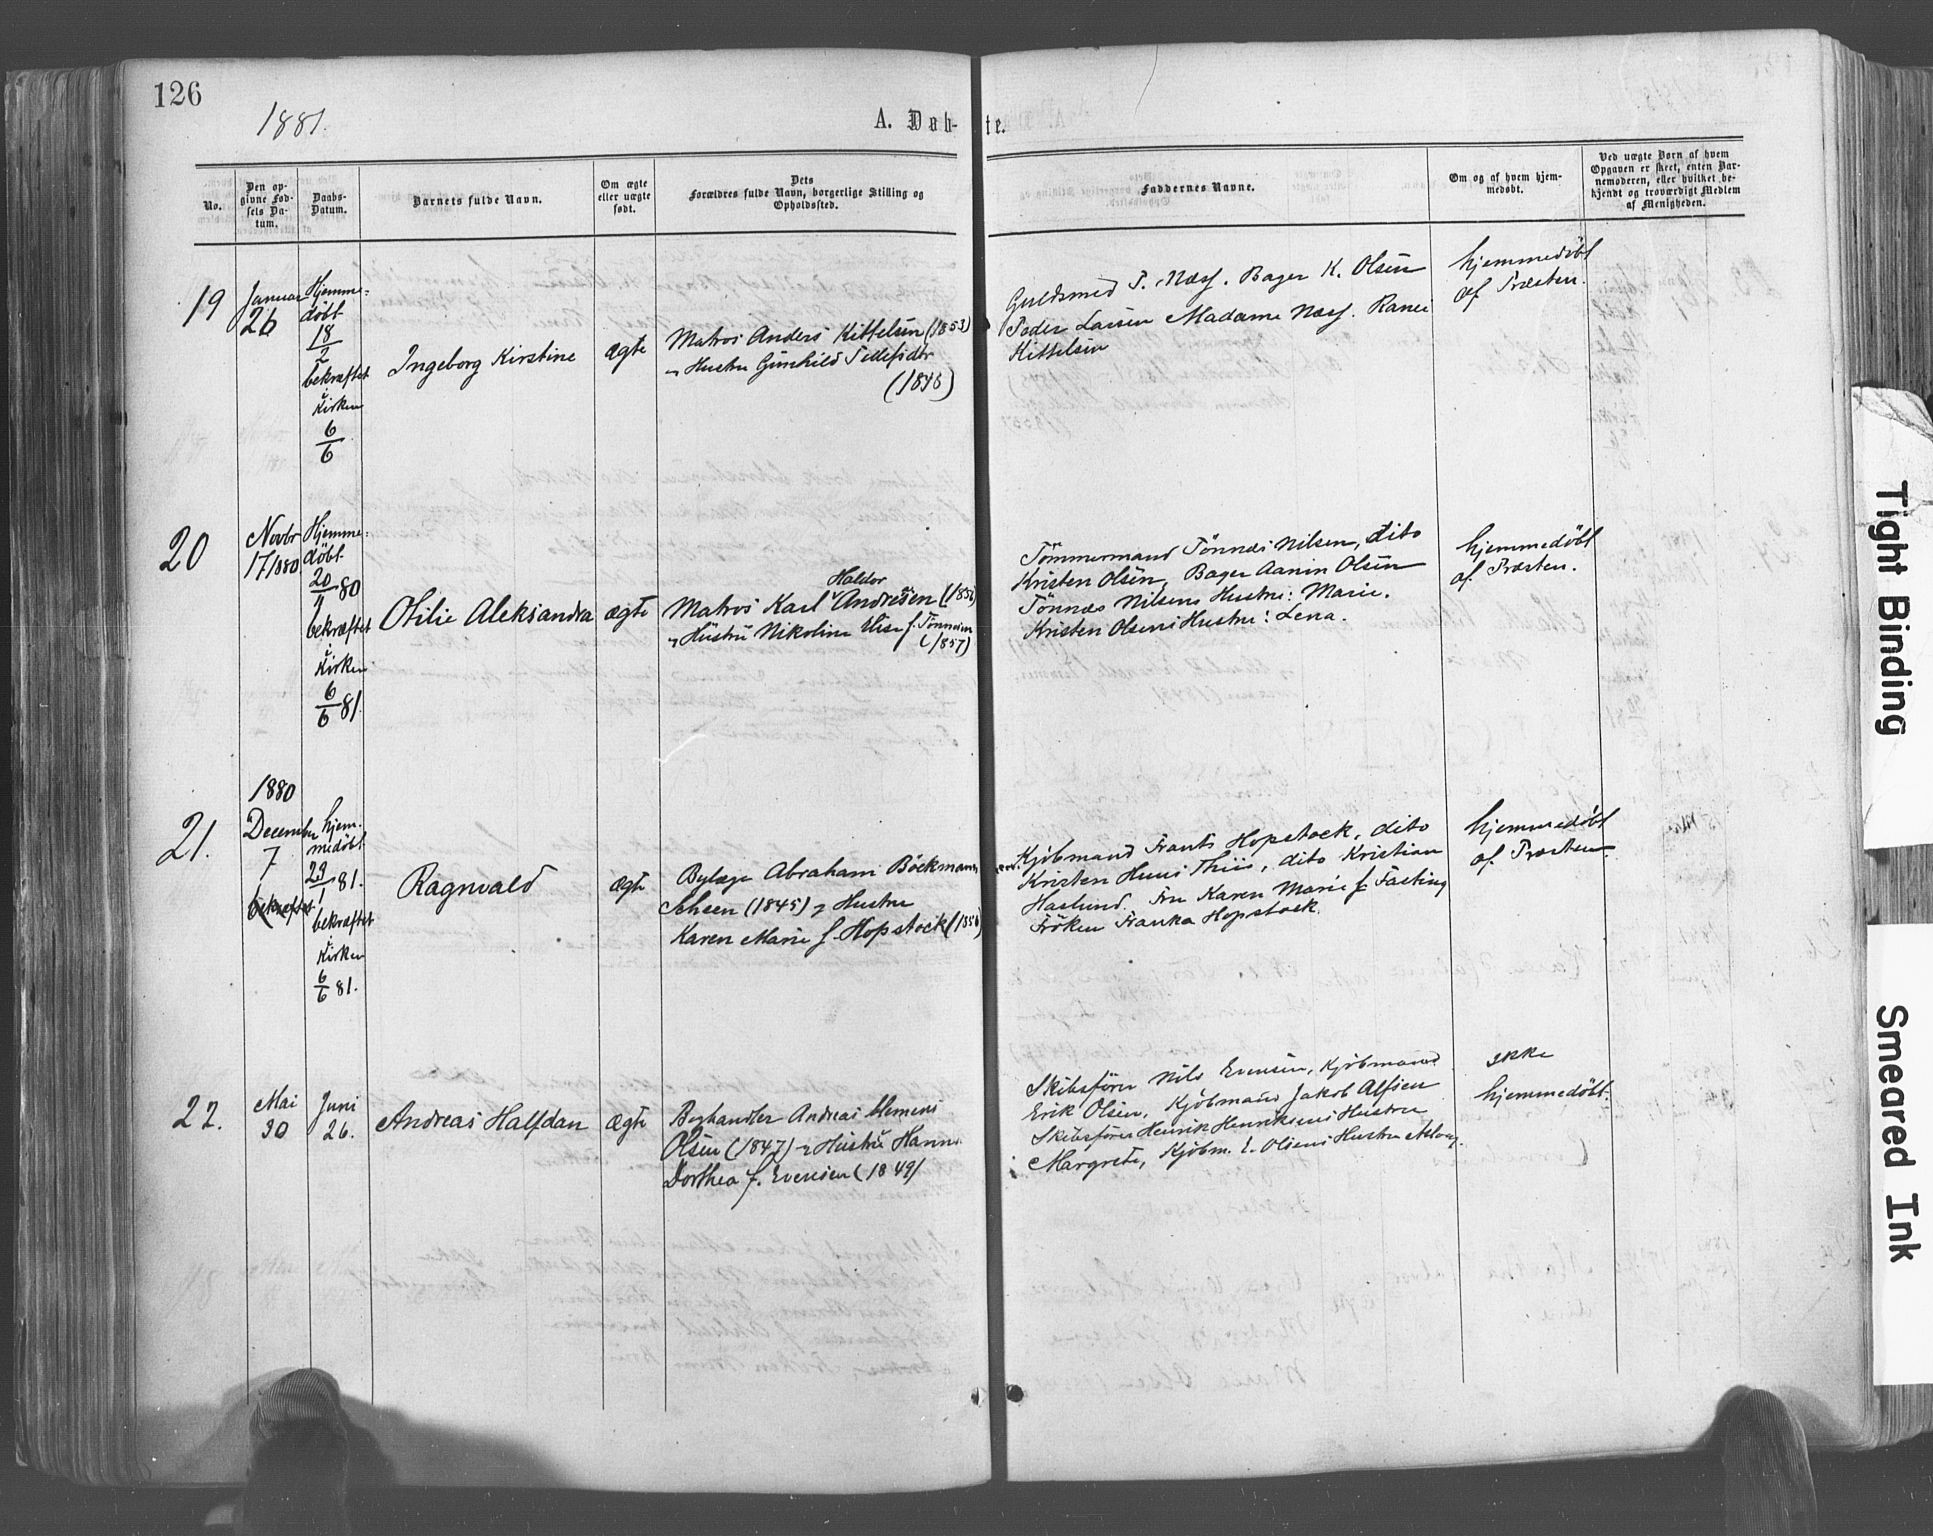 126
1881.
A. Døb-te.
No.
Den op-
givne Fød-
sels Da-
tum.
Daabs-
Datum.
Barnets fulde Navn.
Om ægte
eller uægte
født.
Dets
Forældres fulde Navn, borgerlige Stilling og
Opholdssted.
Faddernes Navne.
Om og af hvem hjem-
medøbt.
Ved uægte Børn af hvem
Opgaven er skeet, enten Bar-
nemoderen, eller hvilket be-
kjendt og troværdigt Medlem
af Menigheden.
19
Januar
26
Hjemme-
døbt
18
2
bekræftet
i
Kirken
6
6
Ingeborg Kirstine
ægte
Matros Anders Kittelsen (1853)
Hustru Gunhild
(1846)
Guldsmed T. Næss. Bager K. Olsen
Peder Larsen Madame Næss.
Kittelsen
hjemmedøbt
af Præsten.
20
Novbr
17/1880
Hjemme-
døbt
20/11 80
bekræftet
i
Kirken
6/6 81.
Otilie Aleksandra
ægte
Haldor
Matros Karl Andresen (1856)
Hustru Nikoline Elise f. Tönnesen
(1857)
Tömmermand Tönnes Nilsen, dito
Kristen Olsen, Bager Aanin Olsen
Tönnes Nilsens Hustru: Marie.
Kristen Olsens Hustru: Lena.
hjemmedøbt
af Præsten.
21.
1880
December
7
bekræftet
hjem-
medøbt
23/1 81.
bekræftet
i
Kirken
6/6 81.
Ragnvald
ægte
Bylæge Abraham Böckmann
Scheen (1845) Hustru
Karen Marie f. Hopstock (1856)
Kjöbmand Frants Hopstock, dito
Kristen Huus Thiis, dito Kristian
Haslund. Fru Karen Marie f. Fasting
Fröken Franka Hopstock.
hjemmedøbt
af Præsten
22.
Mai
30
Juni
26.
Andreas Halfdan
Ægte
Boghandler Andreas Clemens
Olsen (1847) Hustru Hanna
Dorthea f. Evensen (1849)
Skibsförer Nils Evensen, Kjöbmand
Erik Olsen, Kjöbmand Jakob Alfsen
Skibsförer Henrik Henriksens Hustru
Margrete, Kjöbm. E. Olsens Hustru
ikke
hjemmedøbt.
Tight Binding
Smeared Ink